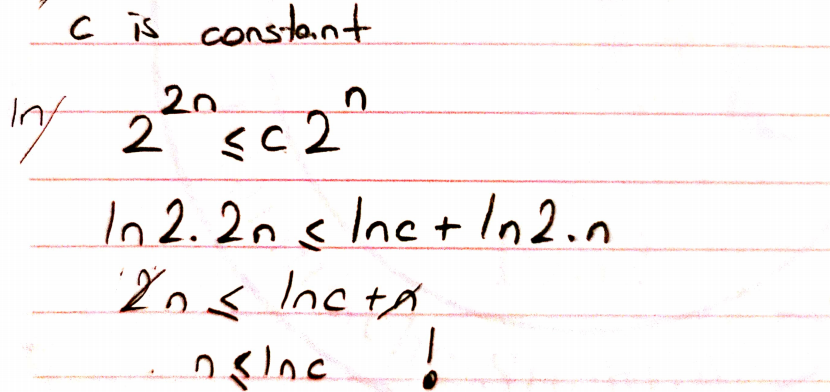 c is constant
ln/ 2^{2n} ≤ c 2^n
ln 2. 2n ≤ lnc + ln 2 . n
2n ≤ lnc + n
n ≤ lnc !